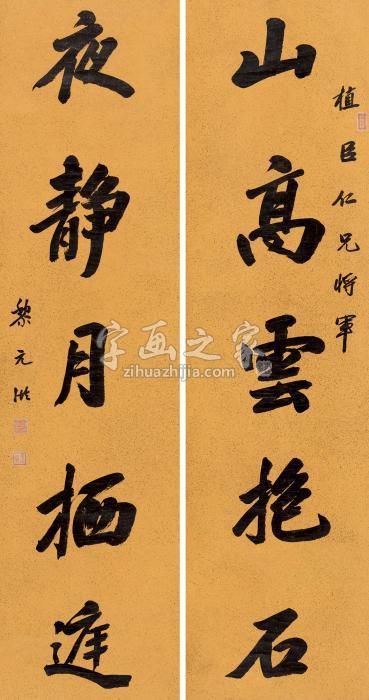 植臣仁兄将軍
山高雲抱石
夜静月栖庭
黎元洪
字画之家
zihuazhijia.com